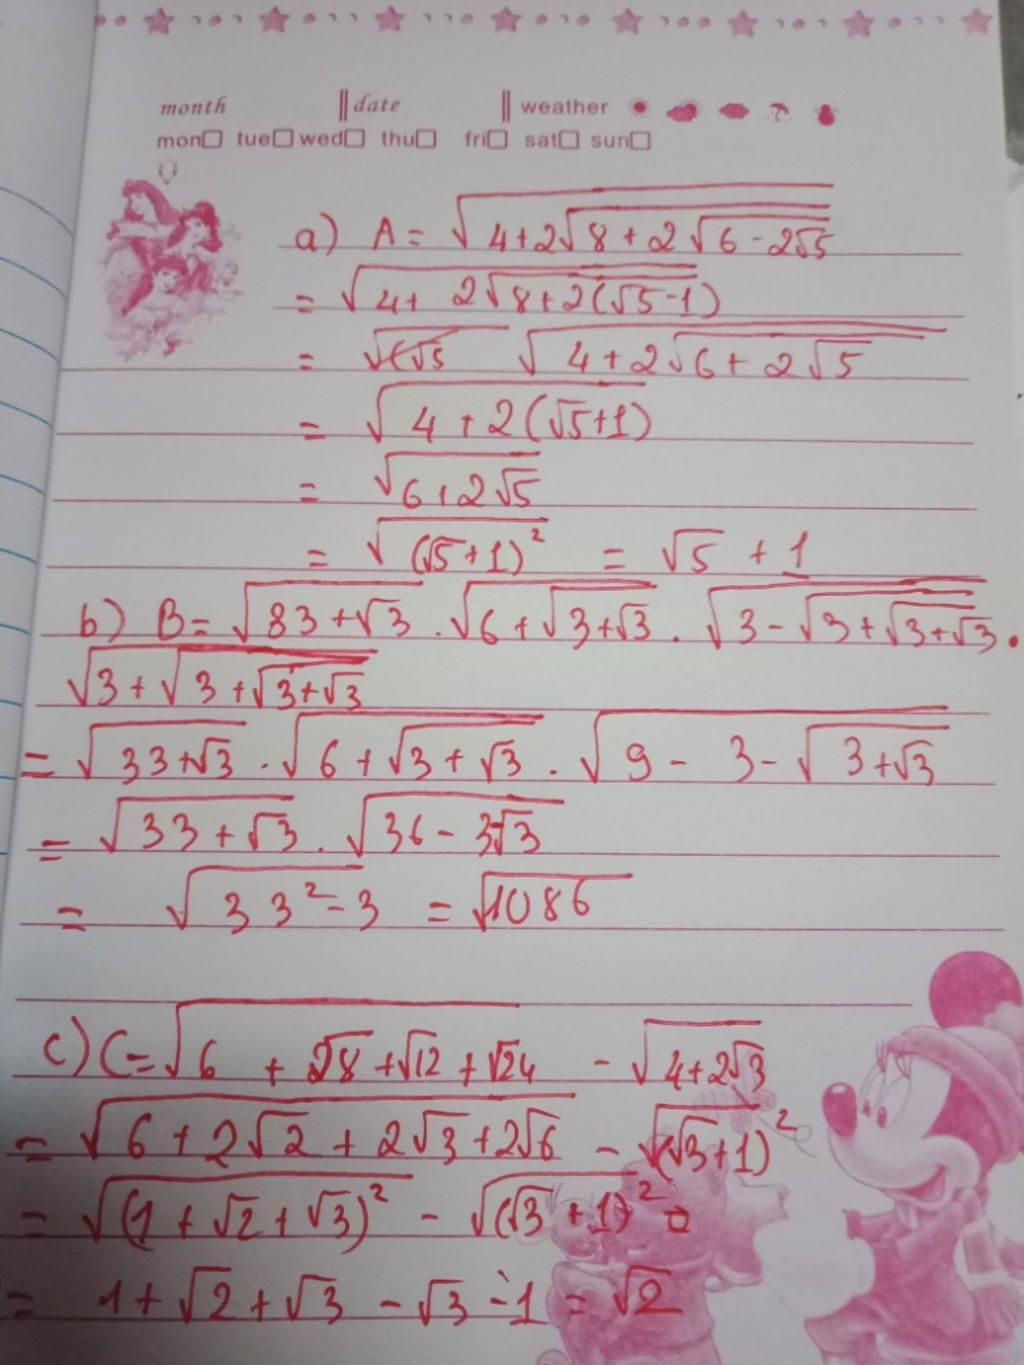 month date weather
mon tue wed thu fri sat sun
a) A = √(4+2√(8+2√(6-2√5)))
= √(4+ 2√(8+2(√5-1)))
= √(4+2√(6+2√5))
= √(4+2(√5+1))
= √(6+2√5)
= √((√5+1)²) = √5 + 1
b) B = √(83+√3) . √(6+√(3+√3)) . √(3-√(3+√(3+√3))) .
√(3+√(3+√(3+√3)))
= √(33+√3) . √(6+√(3+√3)) . √(9 - 3-√(3+√3))
= √(33+√3) . √(36-3-√3)
= √(33²-3) = √1086
c) C = √(6 + √8 + √12 + √24) - √(4+2√3)
= √(6+2√2+2√3+2√6) - √((√3+1)²)
= √((1+√2+√3)²) - √((√3+1)²)
= 1+√2+√3 - √3 - 1 = √2